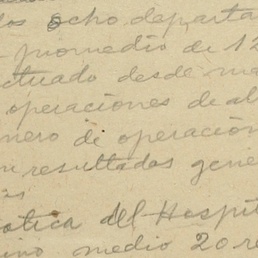 los ocho departa
promedio de 12
ctuado desde ma
operaciones de al
nero de operación
n resultados gene
as
otica del Hospit
ino medio 20 re